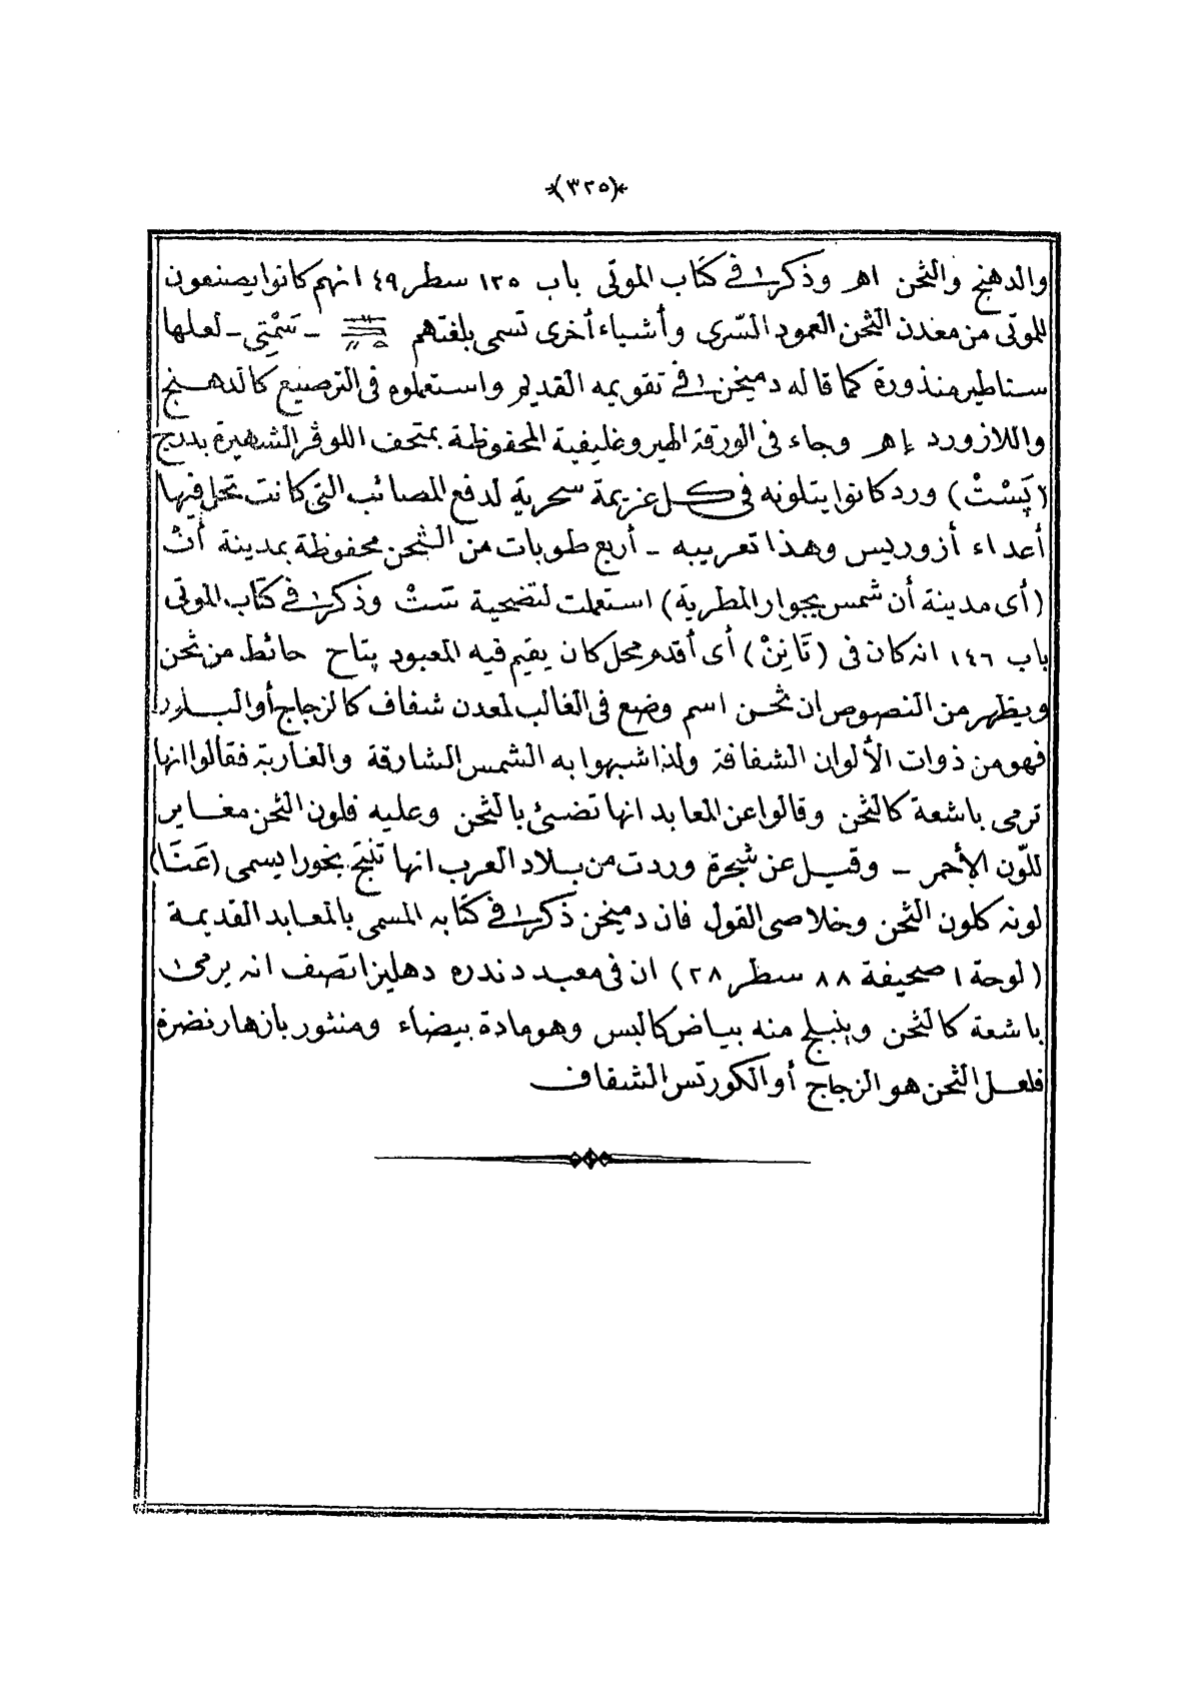 (٣٢٥)
والدهنج والثحن اهر وذكر في كتاب الموتى باب ١٢٥ سطر ٤٩ انهم كانوا يصنعون
للموتى من معدن الثحن العمود السّرى وأشياء أخرى تسمى بلغتهم – تَسْمِتِى – لعلها
سناطير منذورة كما قاله دميخن في تقويمه القديم واستعملوه فى الترصيع كالدهنج
واللازورد إهر وجاء فى الورقة الهيروغليفية المحفوظة بمتحف اللوڤر الشهيرة بدرج
(پَسْتْ) ورد كانوا يتلونه فى كل عزيمة سحرية لدفع المصائب التى كانت تحل فيها
أعداء أزوريس وهذا تعريبه – أربع طوبات من الثحن محفوظة بمدينة أنْ
(أى مدينة أن شمس بجوار المطرية) استعملت لتضحية سَتْ وذكر في كتاب الموتى
باب ١٤٦ انه كان فى (تَانِنْ) أى أقدم محل كان يقيم فيه المعبود پتاح حائط من ثحن
ويظهر من النصوص ان ثحن اسم وضع فى الغالب لمعدن شفاف كالزجاج أو البلور
فهو من ذوات الألوان الشفافة ولذا شبهوا به الشمس الشارقة والغاربة فقالوا انها
ترمى باشعة كالثحن وقالوا عن المعابد انها تضئ بالثحن وعليه فلون الثحن مغاير
للّون الأحمر – وقيل عن شجرة وردت من بلاد العرب انها تنتج بخورا يسمى (عَنتَا)
لونه كلون الثحن وخلاصى القول فان دميخن ذكر في كتابه المسمى بالمعابد القديمة
(لوحة ١ صحيفة ٨٨ سطر ٢٨) ان فى معبد دندره دهليزا تصف انه يرمى
باشعة كالثحن وينبلج منه بياض كالبس وهو مادة بيضاء ومنثور بازهار نضرة
فلعل الثحن هو الزجاج أو الكورتس الشفاف